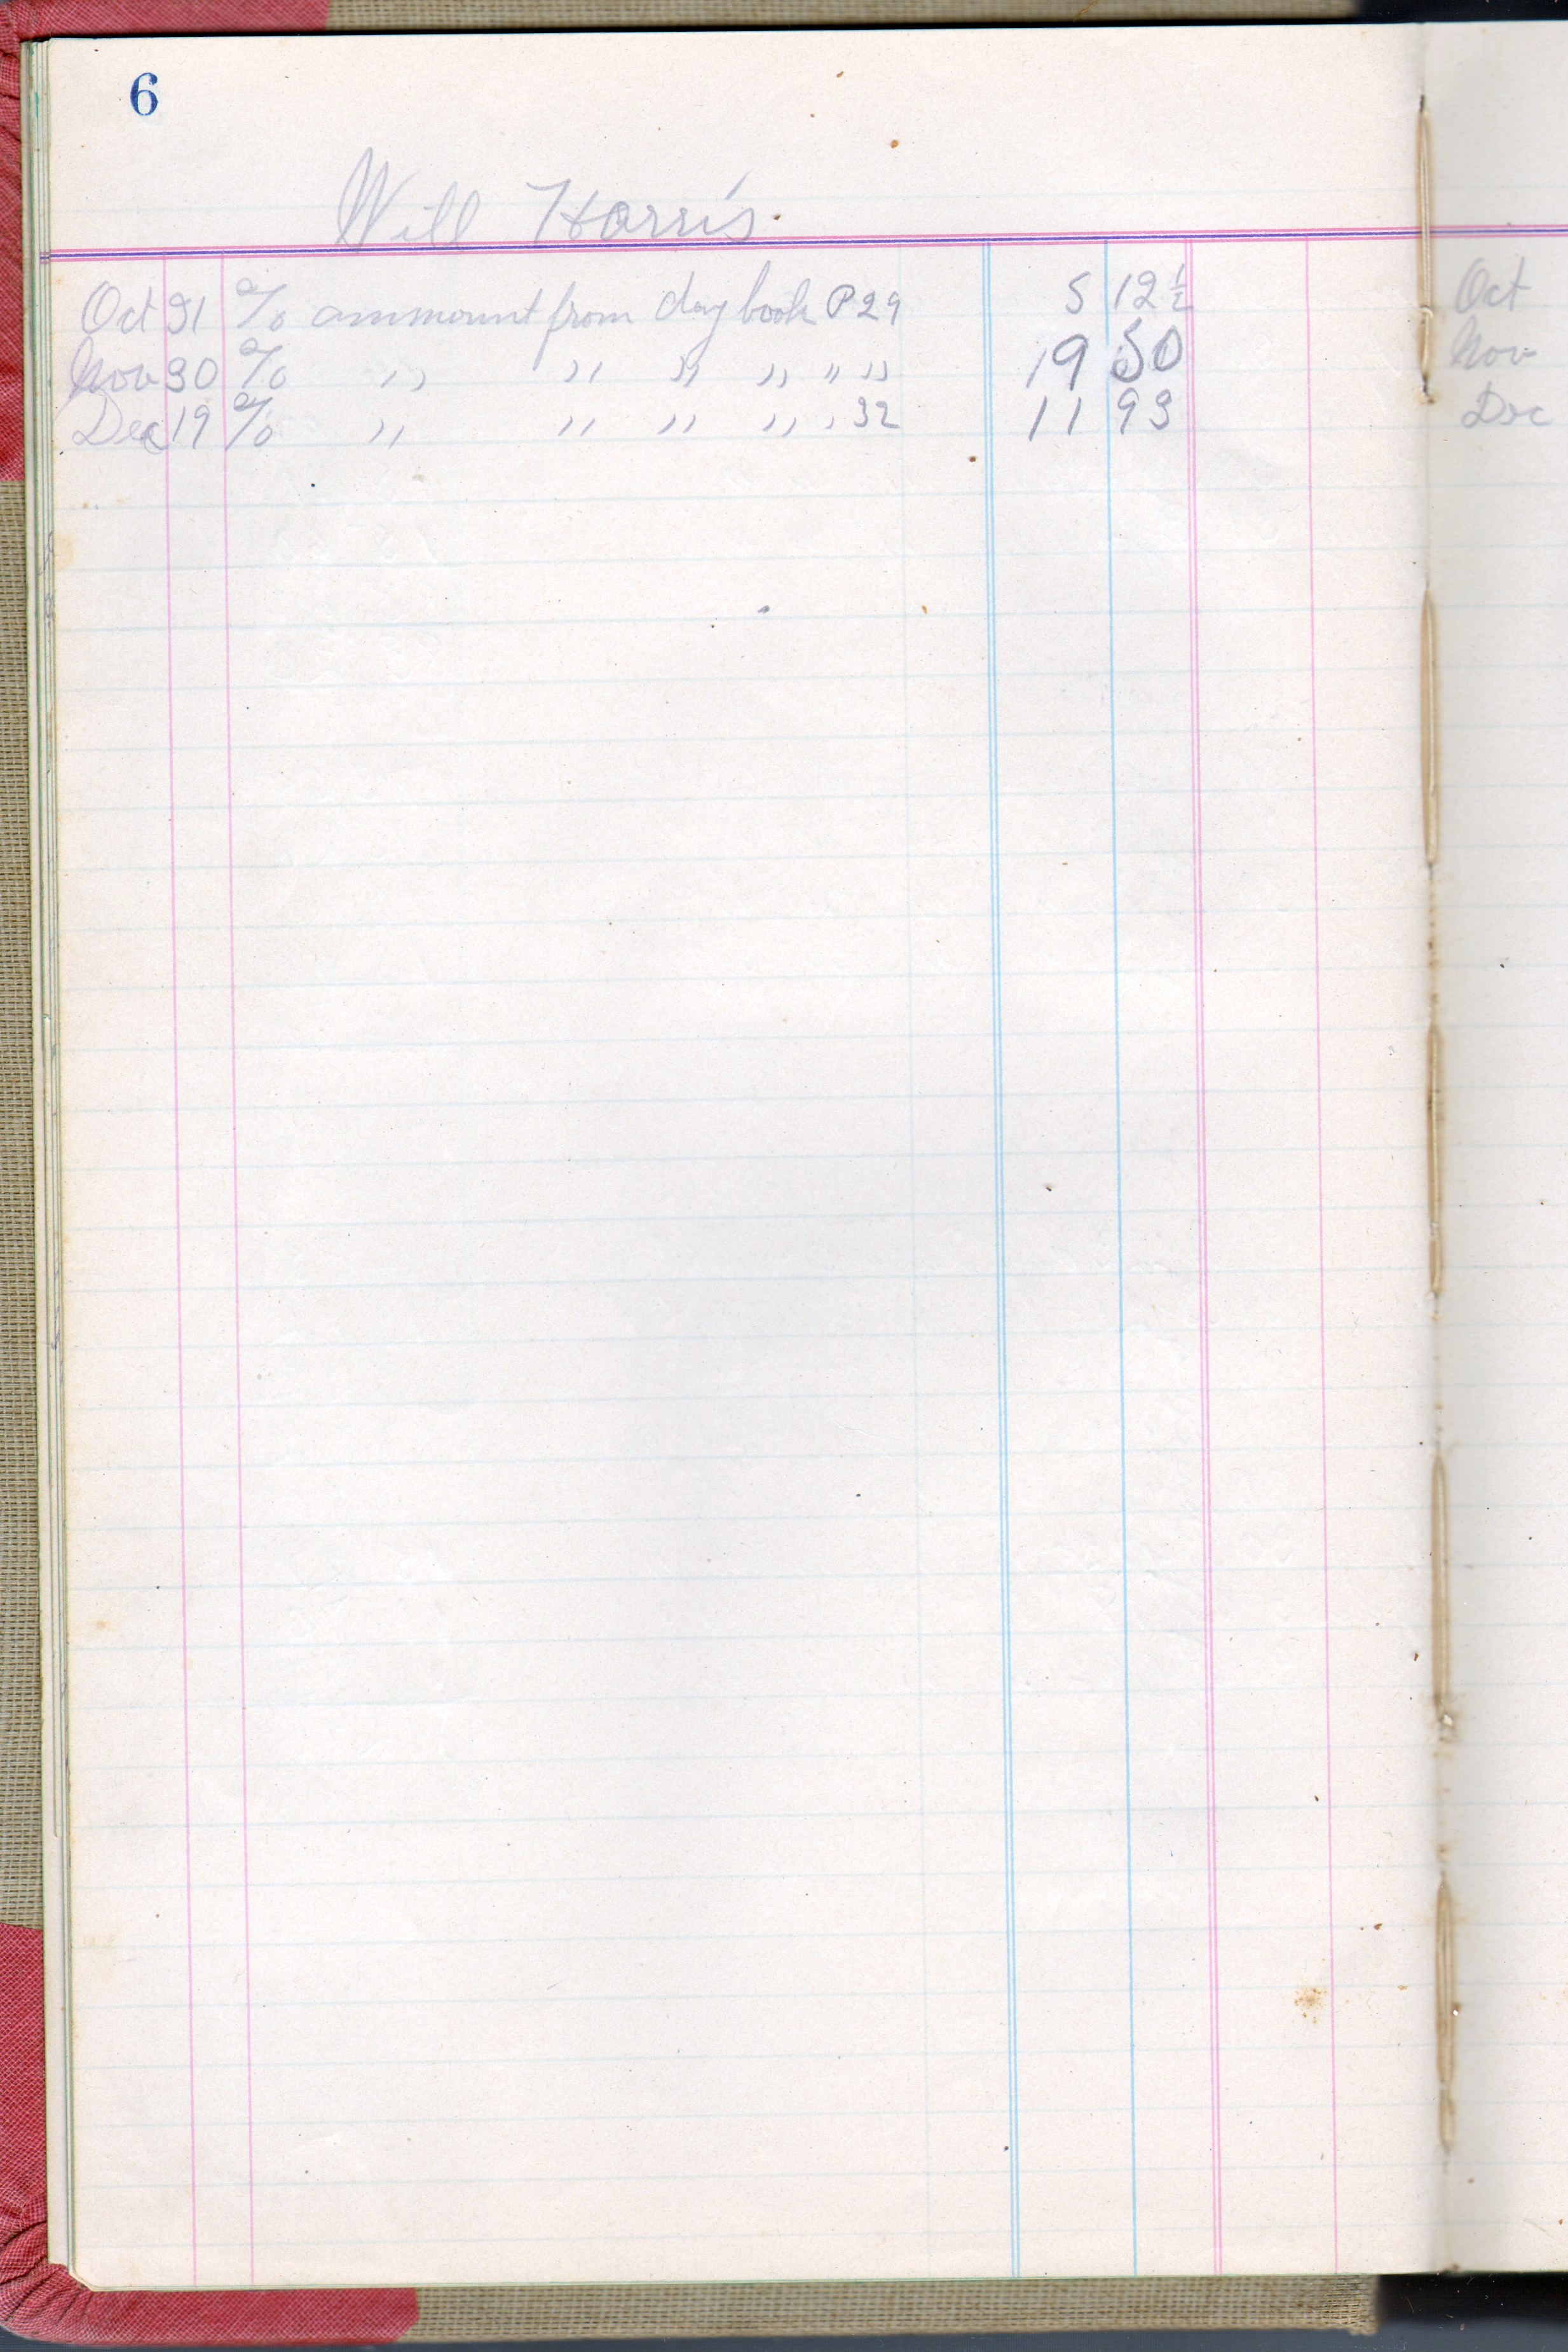 6
Will Harris
Oct 31 a/c ammount from day book P 29 5 12½
Nov 30 a/c " " " " " " 19 50
Dec 19 a/c " " " " " 32 11 93
Oct
Nov
Dec